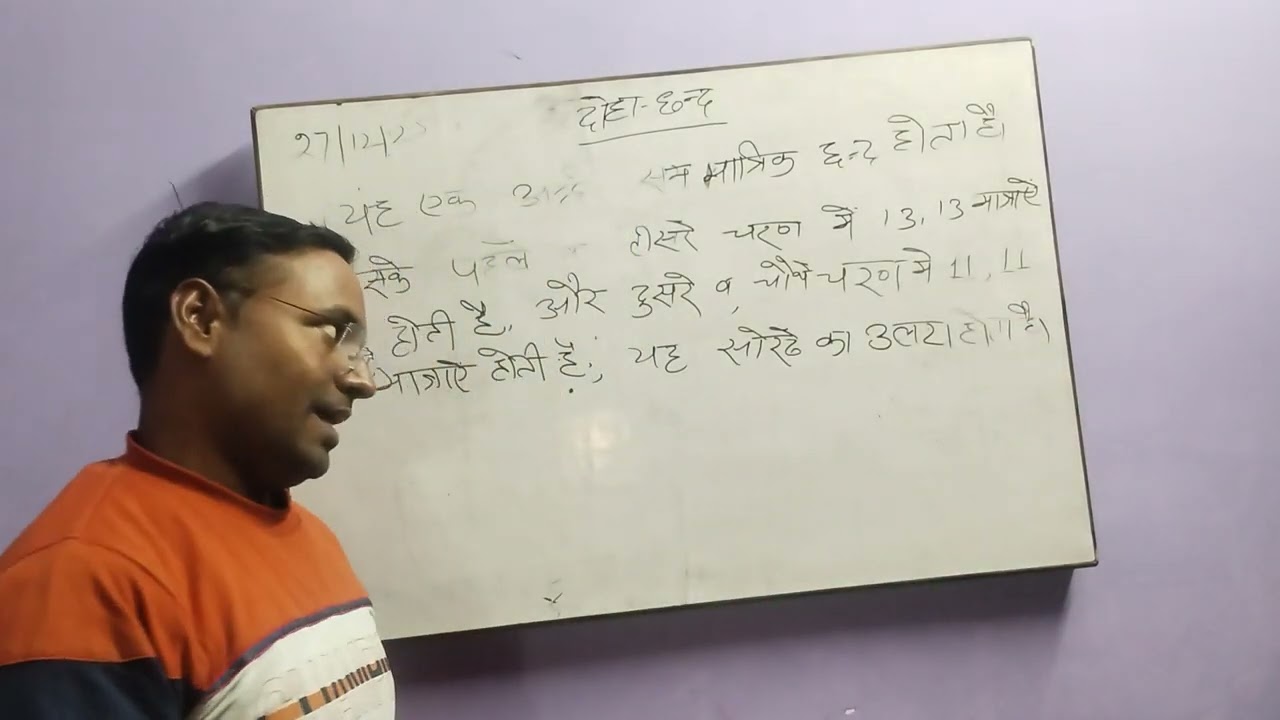 27/12/25
दोहा-छन्द
यह एक सम मात्रिक छन्द होता है।
सके पहले तीसरे चरण में 13, 13 मात्राऐं
होती है, और दुसरे व, चौथे चरण में 11, 11
मात्राऐं होती हैं, यह सोरठे का उलटा होता है।